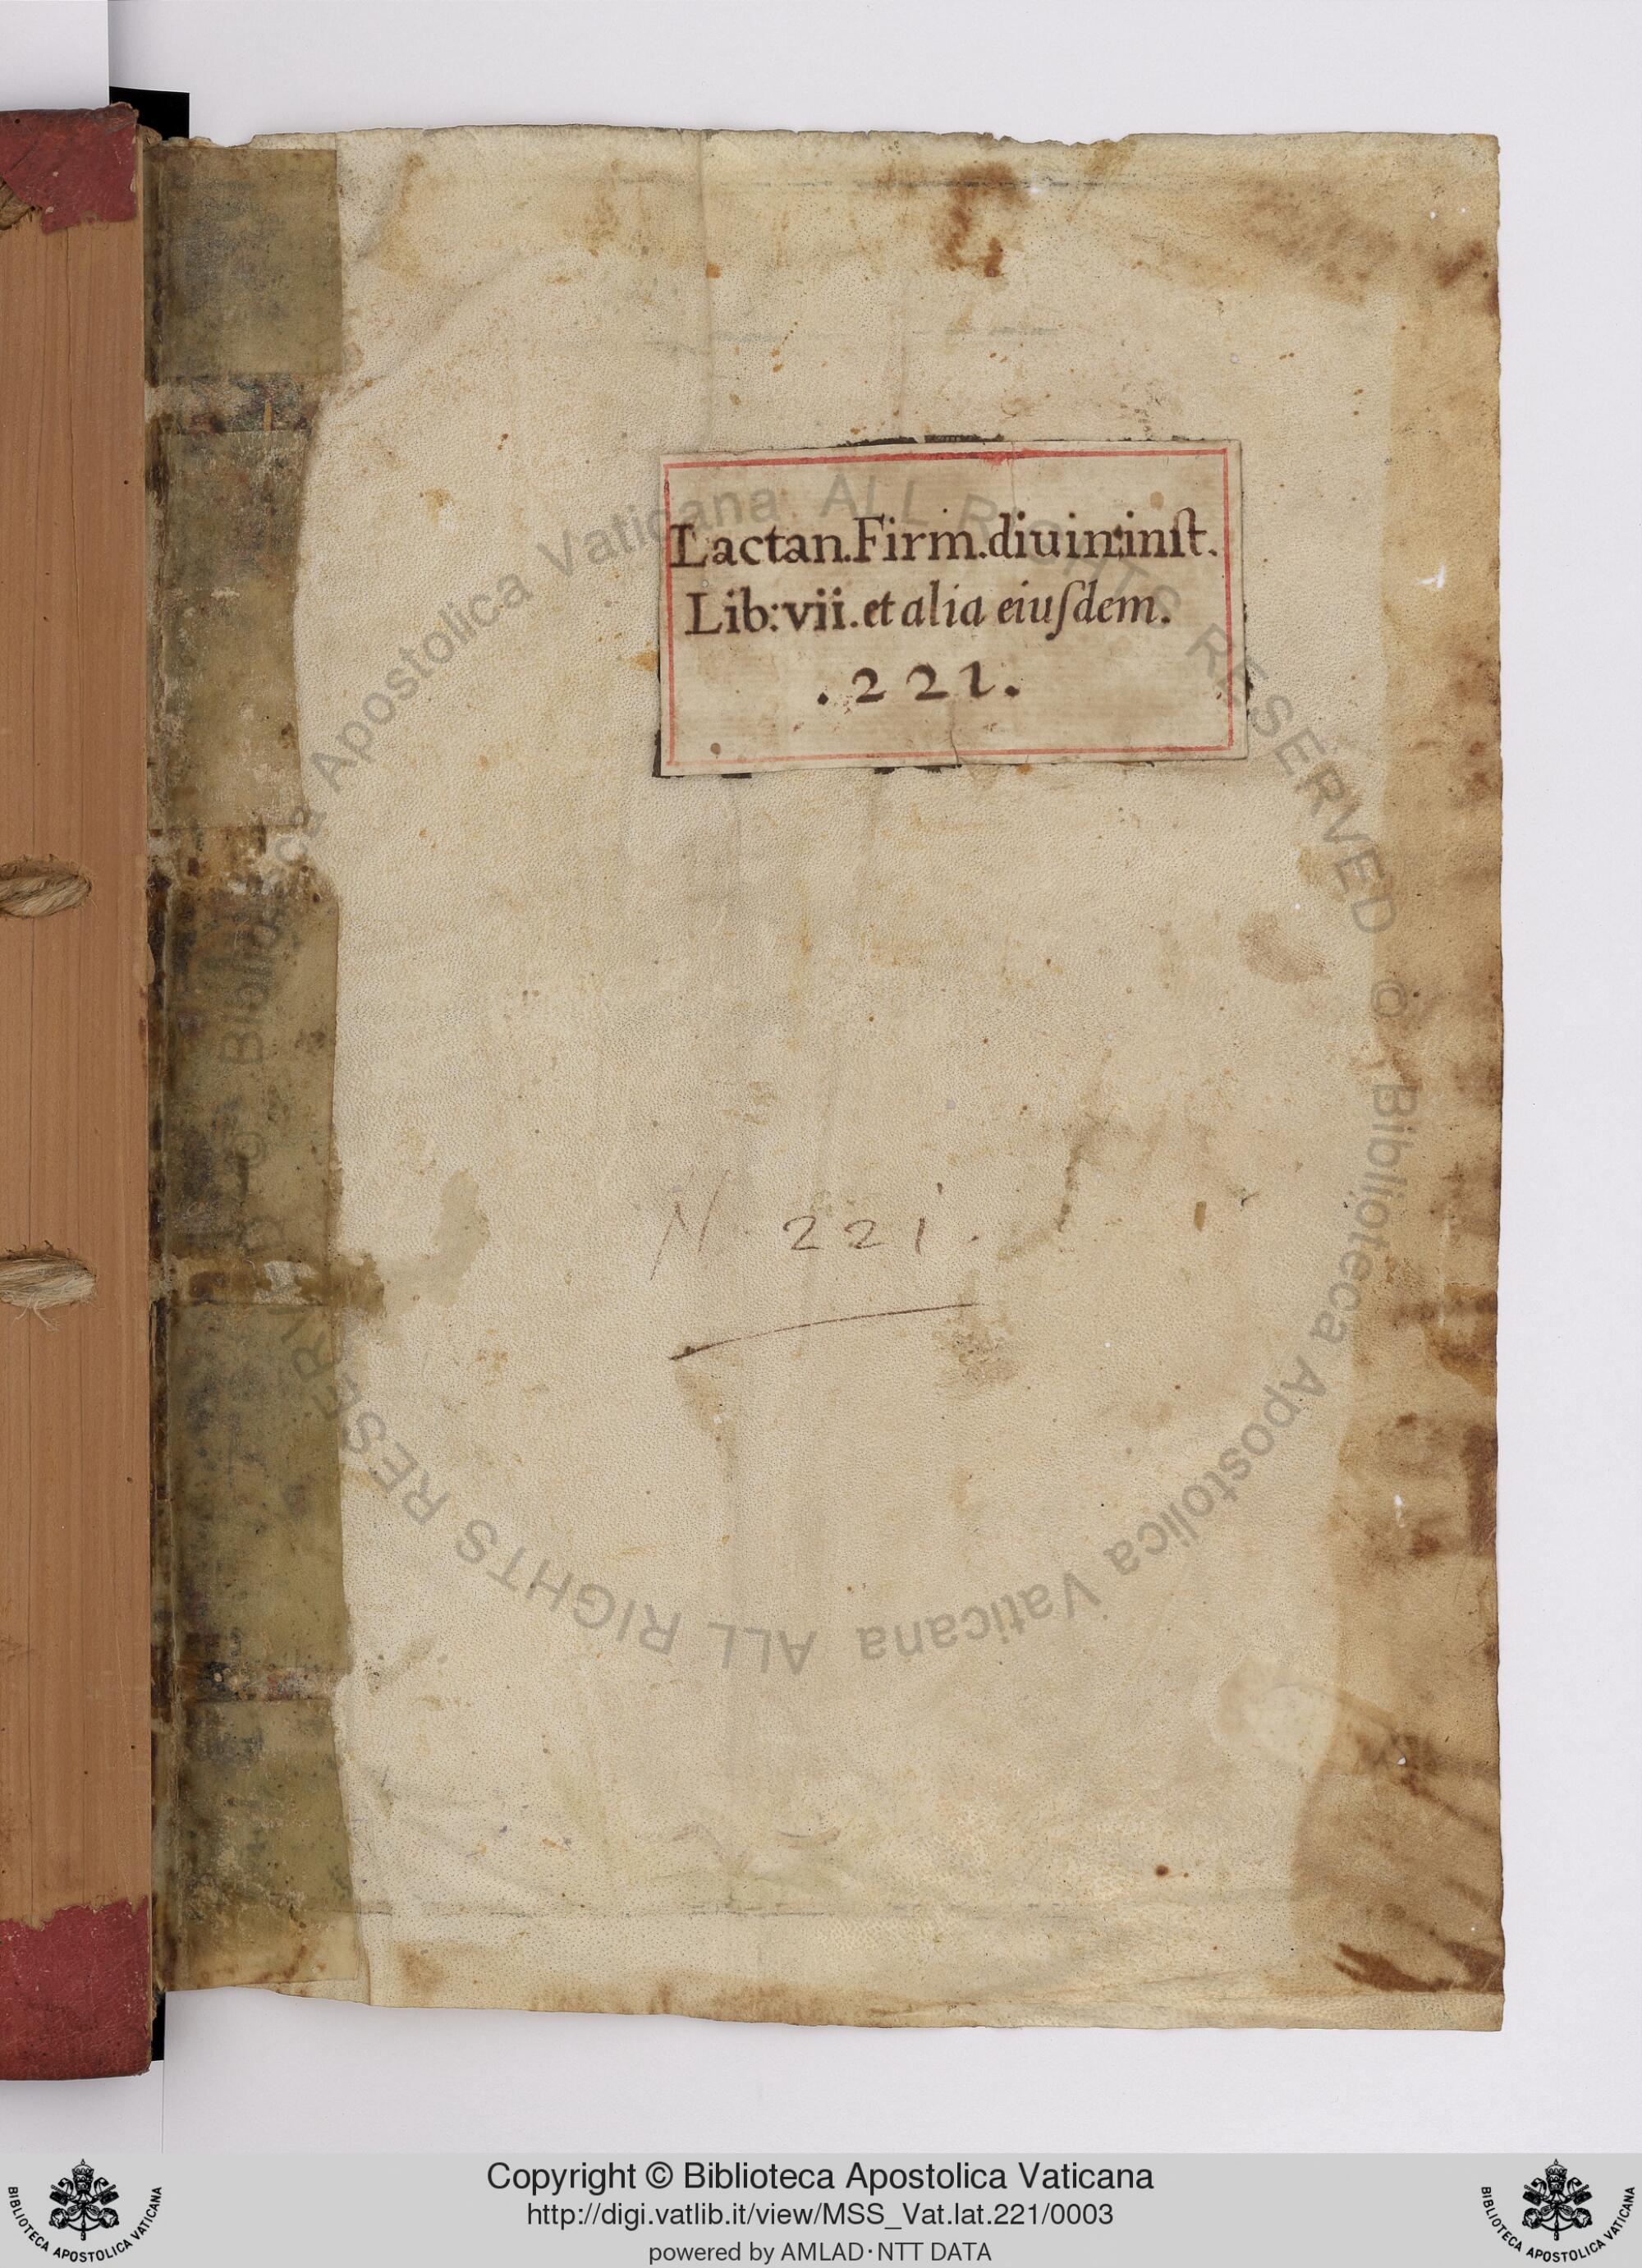 Lactan.Firm.diuin:inſt.
Lib:vii.et alia eiuſdem.
.221.
N. 221.
© Biblioteca Apostolica Vaticana ALL RIGHTS RESERVED
© Biblioteca Apostolica Vaticana ALL RIGHTS RESERVED
Copyright © Biblioteca Apostolica Vaticana
http://digi.vatlib.it/view/MSS_Vat.lat.221/0003
powered by AMLAD·NTT DATA
BIBLIOTECA APOSTOLICA VATICANA
BIBLIOTECA APOSTOLICA VATICANA